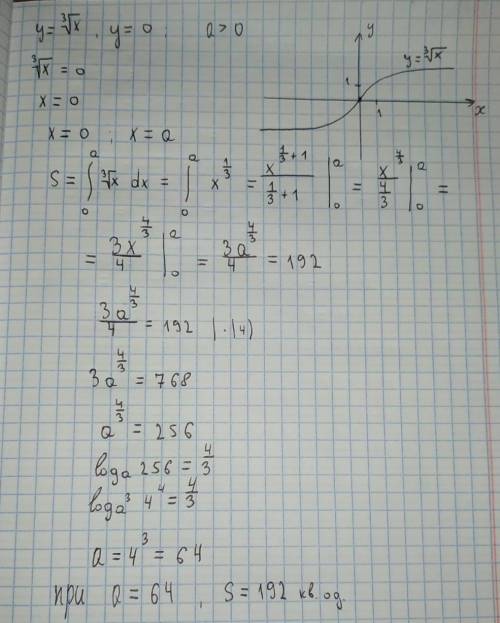 y = ∛x , y = 0 ; a > 0
∛x = 0
x = 0
x = 0 ; x = a
y
y = ∛x
1
1
x
S = ∫₀ᵃ ∛x dx = ∫₀ᵃ x^(1/3) = x^(1/3 + 1) / (1/3 + 1) |₀ᵃ = x^(4/3) / (4/3) |₀ᵃ =
= 3x^(4/3) / 4 |₀ᵃ = 3a^(4/3) / 4 = 192
3a^(4/3) / 4 = 192 | · (4)
3a^(4/3) = 768
a^(4/3) = 256
log_a 256 = 4/3
log_a³ 4⁴ = 4/3
a = 4³ = 64
при a = 64 , S = 192 кв. од.